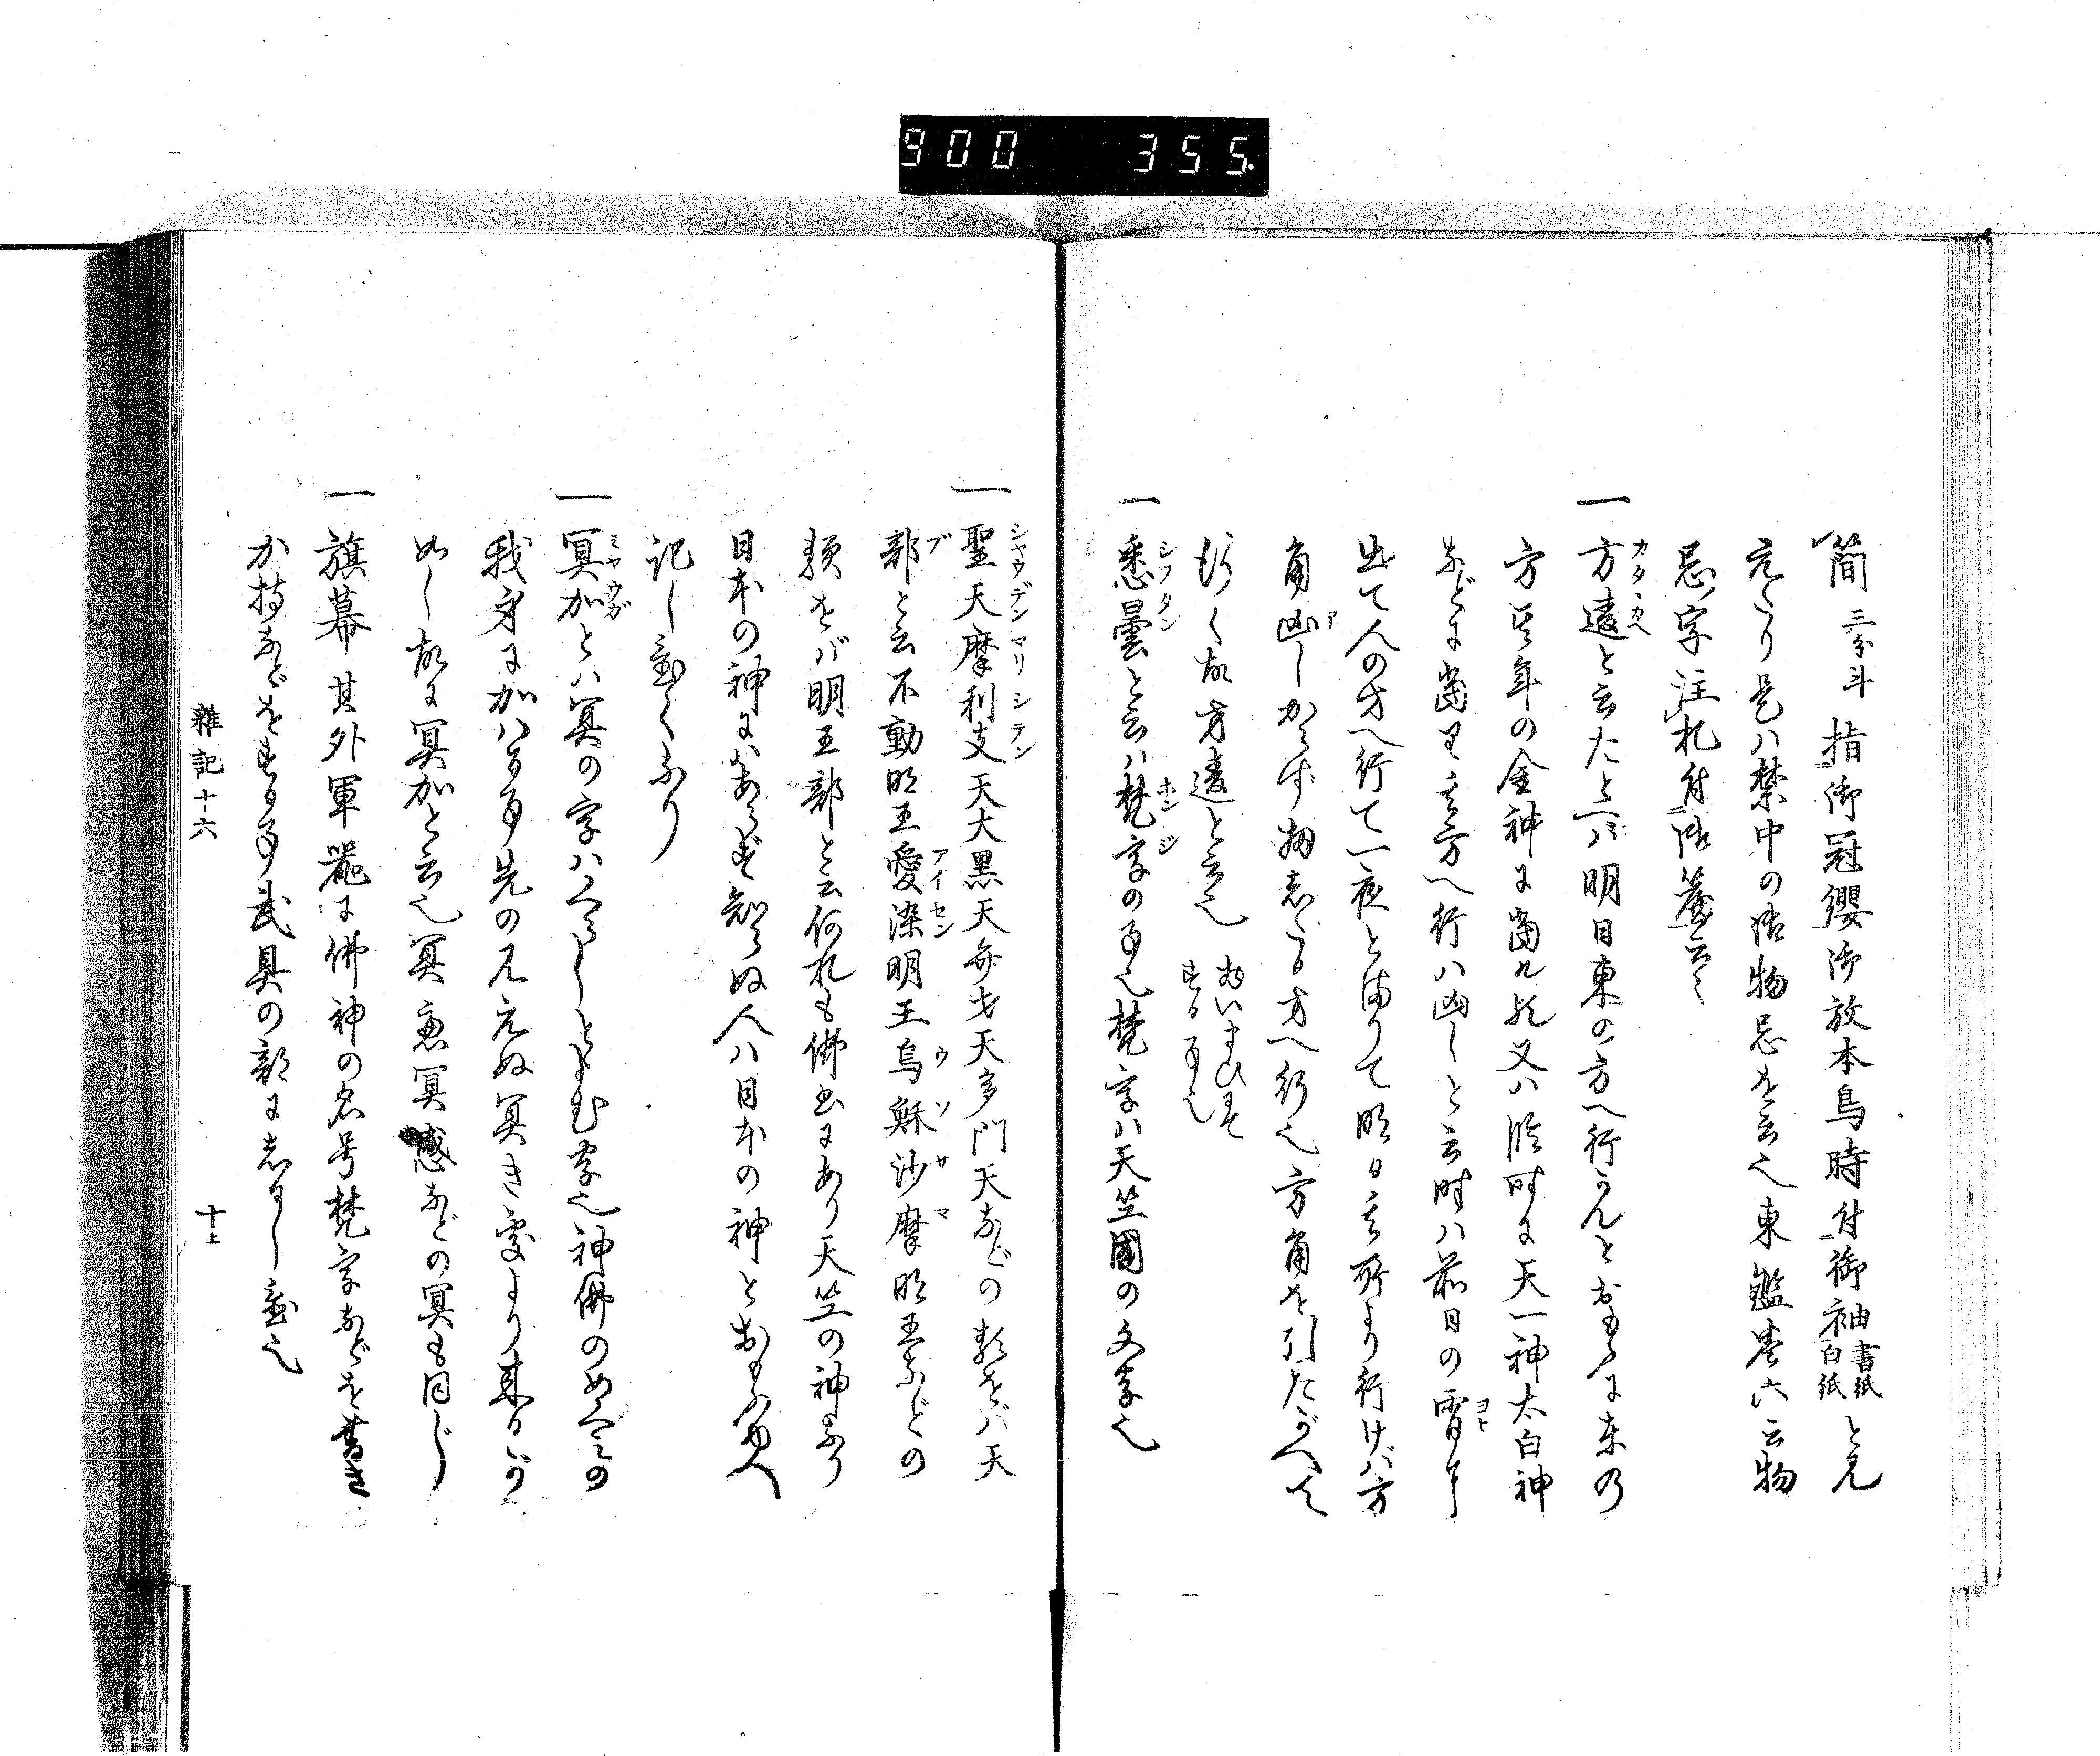 900 355.
簡三分斗指御冠纓御放本鳥時付御袖書紙白紙と見
えたり是ハ禁中の御物忌を云也東鑑巻六云物
忌字注札付御簾云々
一方違と云たとへバ明日東の方へ行かんとおもふに東の
方其年の金神に當ル歟又ハ臨時に天一神太白神
などに當り其方へ行ハ凶しと云時ハ前日の宵より
出て人の方へ行て一夜とまりて明日其所より行けバ方
角凶しからず扨志たる方へ行也方角を引たがへて
行く故方違と云也
物いまひをする事也
一悉曇と云ハ梵字の事也梵字ハ天竺國の文字也
一聖天摩利支天大黒天弁才天多門天などの類をバ天
部と云不動明王愛染明王烏蘇沙摩明王などの
類をバ明王部と云何れも佛也にあり天竺の神なり
日本の神にハあらず知らぬ人ハ日本の神とおもふ故
記し置くなり
一冥加とハ冥の字ハくらしとよむ字也神佛のめぐみの
我身に加ハる事先の見えぬ冥き處より来るが
如し故に冥加と云也冥慮冥感などの冥も同じ
一旗幕其外軍器に佛神の名号梵字などを書き
か持などをする事武具の部に志るし置也
雜記十六
十上